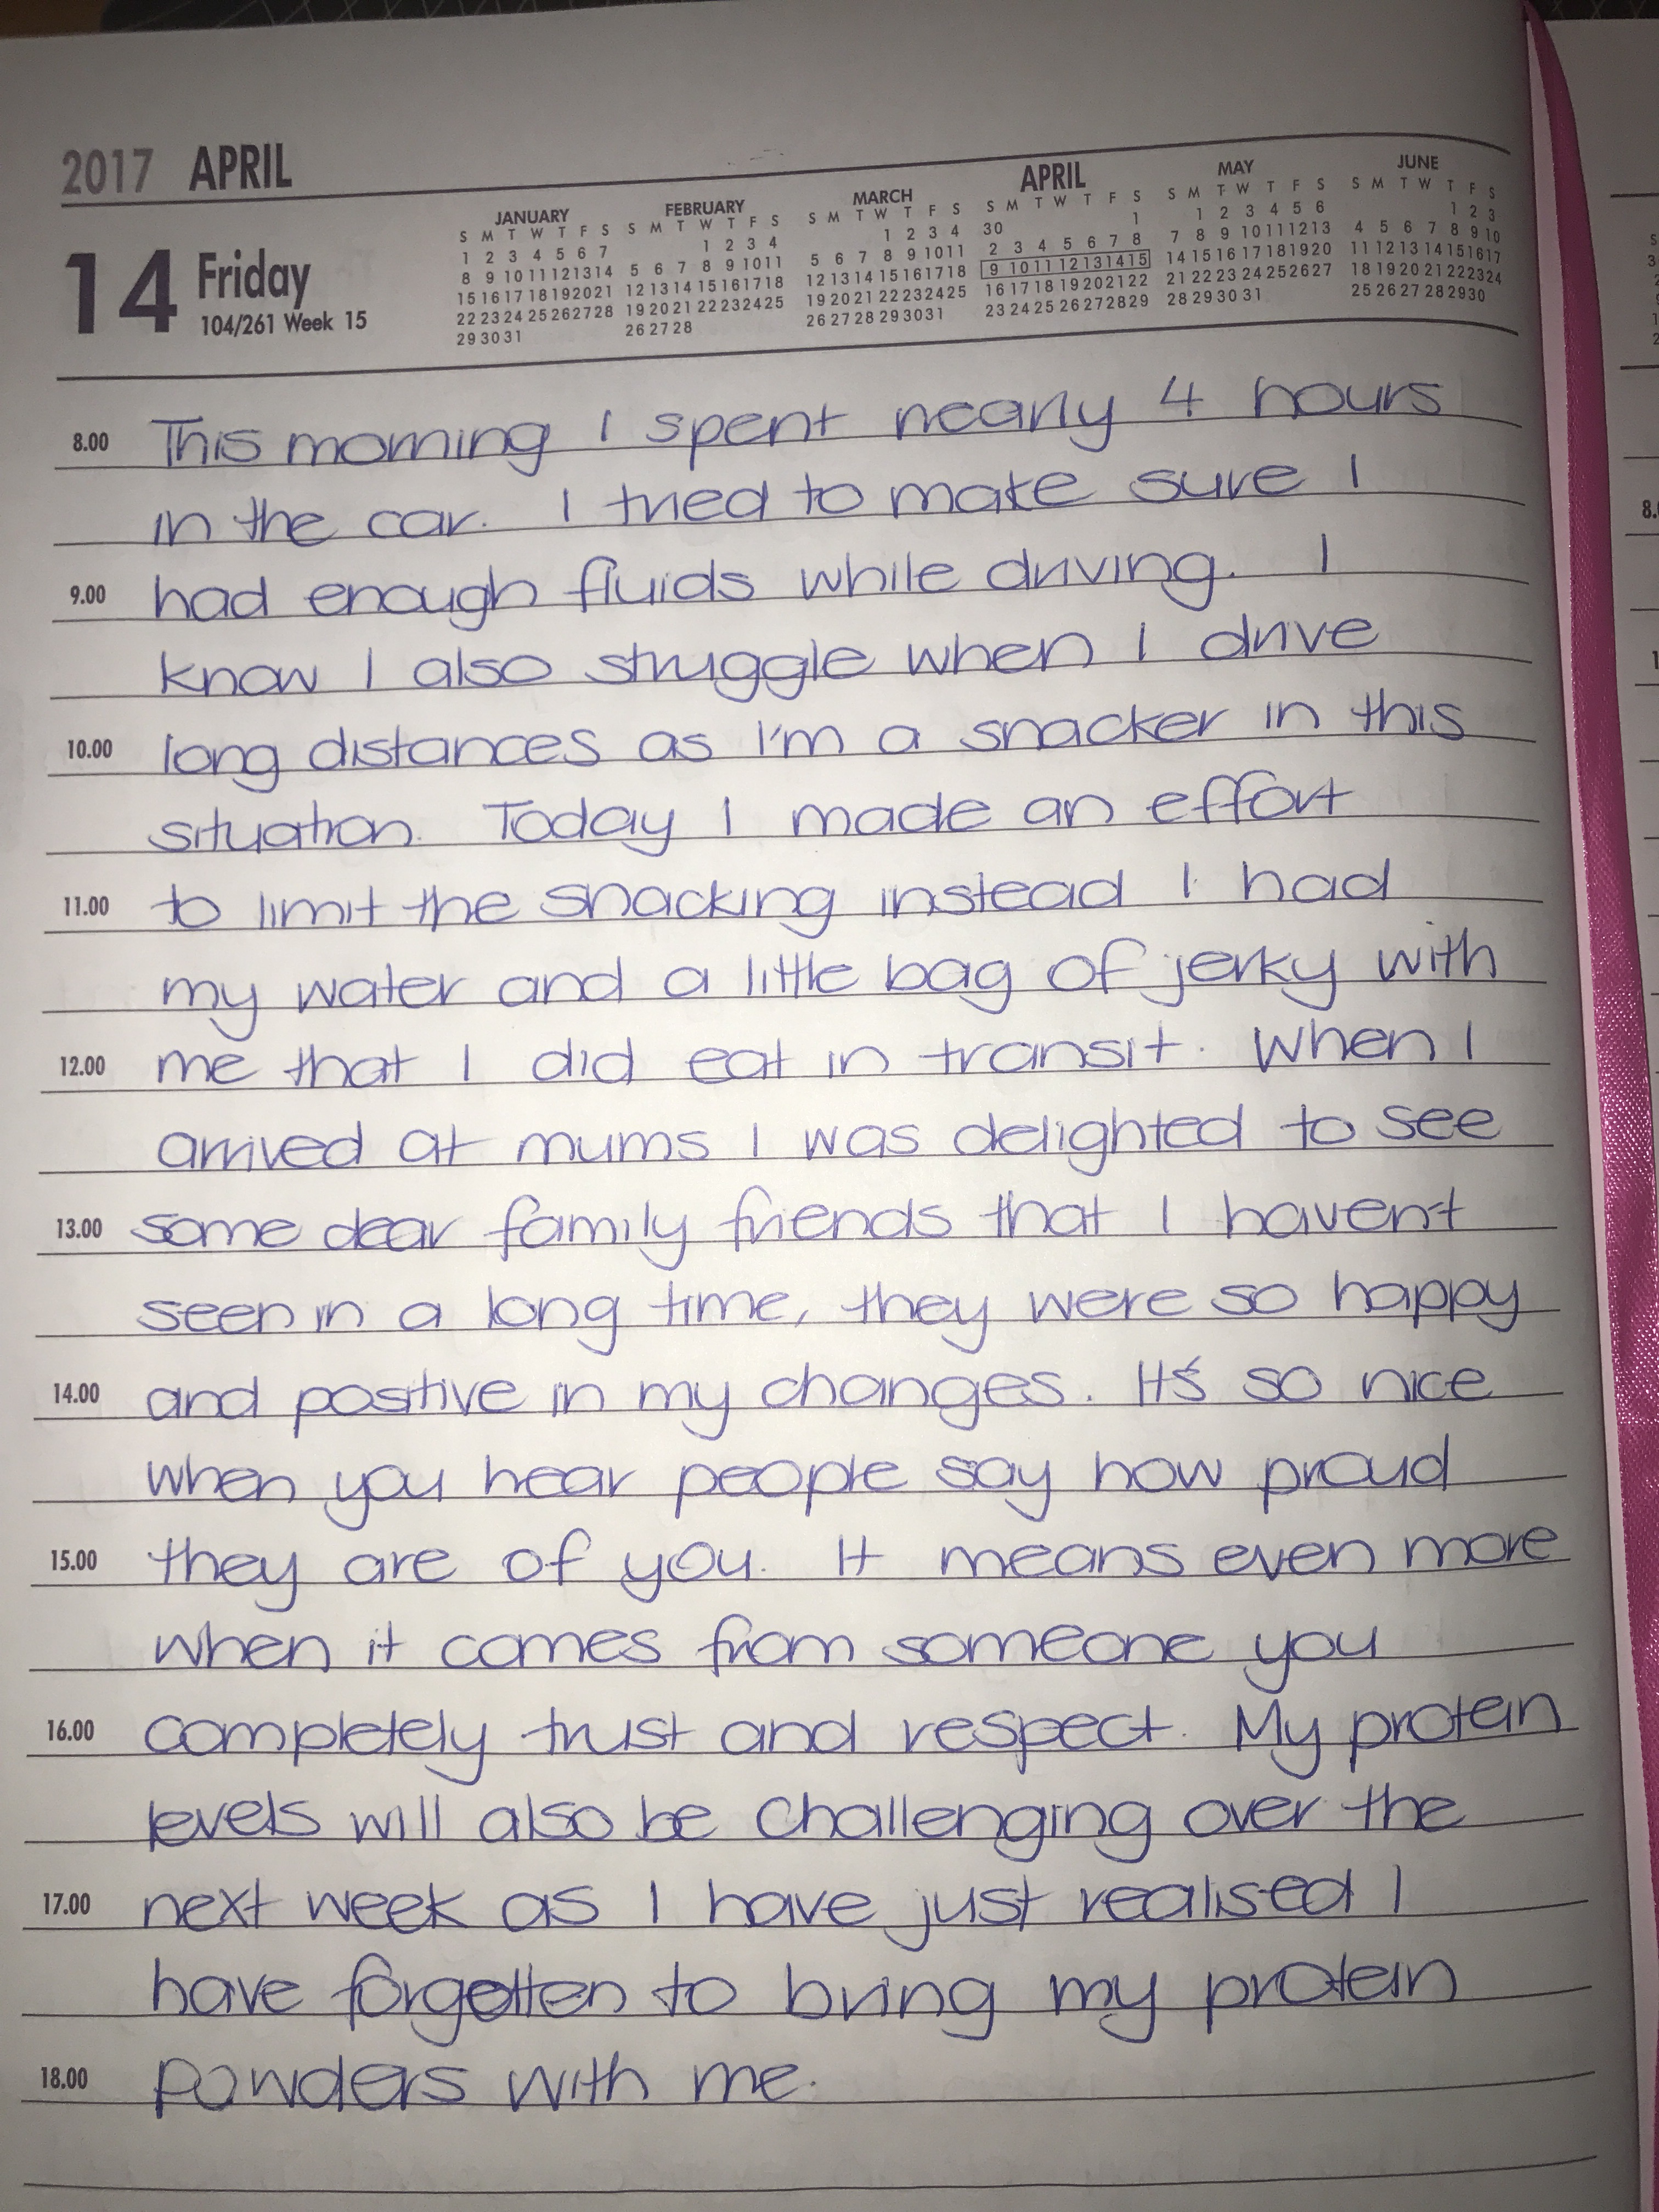 2017 APRIL
14 Friday
104/261 Week 15
JANUARY
S M T W T F S
1 2 3 4 5 6 7
8 9 10 11 12 13 14
15 16 17 18 19 20 21
22 23 24 25 26 27 28
29 30 31
FEBRUARY
S M T W T F S
1 2 3 4
5 6 7 8 9 10 11
12 13 14 15 16 17 18
19 20 21 22 23 24 25
26 27 28
MARCH
S M T W T F S
1 2 3 4
5 6 7 8 9 10 11
12 13 14 15 16 17 18
19 20 21 22 23 24 25
26 27 28 29 30 31
APRIL
S M T W T F S
30 1
2 3 4 5 6 7 8
9 10 11 12 13 14 15
16 17 18 19 20 21 22
23 24 25 26 27 28 29
MAY
S M T W T F S
1 2 3 4 5 6
7 8 9 10 11 12 13
14 15 16 17 18 19 20
21 22 23 24 25 26 27
28 29 30 31
JUNE
S M T W T F S
1 2 3
4 5 6 7 8 9 10
11 12 13 14 15 16 17
18 19 20 21 22 23 24
25 26 27 28 29 30
8.00 This morning I spent nearly 4 hours
in the car. I tried to make sure I
9.00 had enough fluids while driving. I
know I also struggle when I drive
10.00 long distances as I'm a snacker in this
situation. Today I made an effort
11.00 to limit the snacking instead I had
my water and a little bag of jerky with
12.00 me that I did eat in transit. When I
arrived at mums I was delighted to see
13.00 some dear family friends that I haven't
seen in a long time, they were so happy
14.00 and positive in my changes. It's so nice
when you hear people say how proud
15.00 they are of you. It means even more
when it comes from someone you
16.00 completely trust and respect. My protein
levels will also be challenging over the
17.00 next week as I have just realised I
have forgotten to bring my protein
18.00 powders with me.